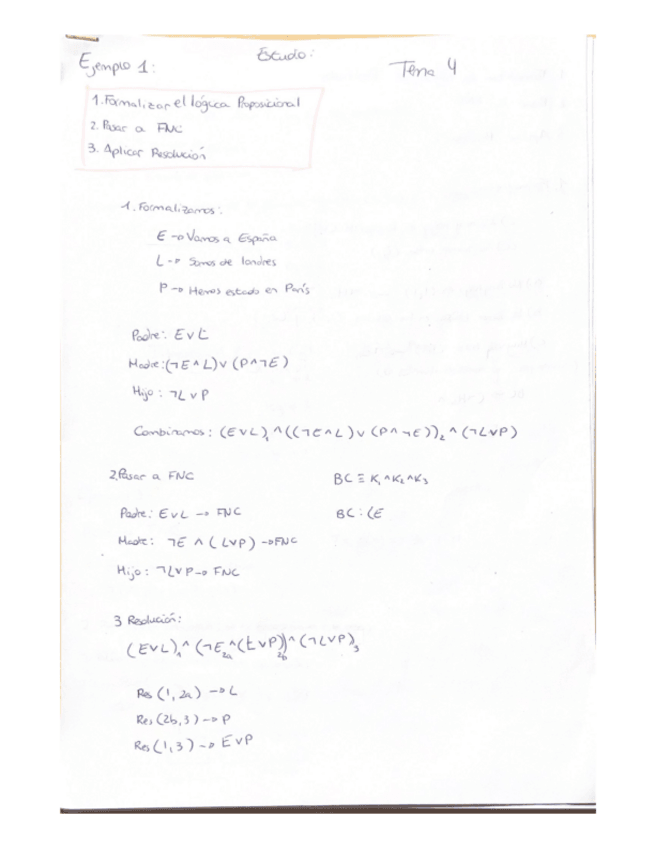 Estudo:
Ejemplo 1:
Tema 4
1. Formalizar el lógica Proposicional
2. Pasar a FNC
3. Aplicar Resolución
1. Formalizamos:
E → Vamos a España
L → Somos de londres
P → Hemos estado en París
Padre: E ∨ L
Madre: (¬E ∧ L) ∨ (P ∧ ¬E)
Hijo: ¬L ∨ P
Combinamos: (E ∨ L)₁ ∧ ((¬E ∧ L) ∨ (P ∧ ¬E))₂ ∧ (¬L ∨ P)
2. Pasar a FNC
BC ≡ K₁ ∧ K₂ ∧ K₃
Padre: E ∨ L → FNC
BC: (E
Madre: ¬E ∧ (L ∨ P) → FNC
Hijo: ¬L ∨ P → FNC
3 Resolución:
(E ∨ L)₁ ∧ (¬E₂ₐ ∧ (L ∨ P))₂b ∧ (¬L ∨ P)₃
Res (1, 2a) → L
Res (2b, 3) → P
Res (1, 3) → E ∨ P